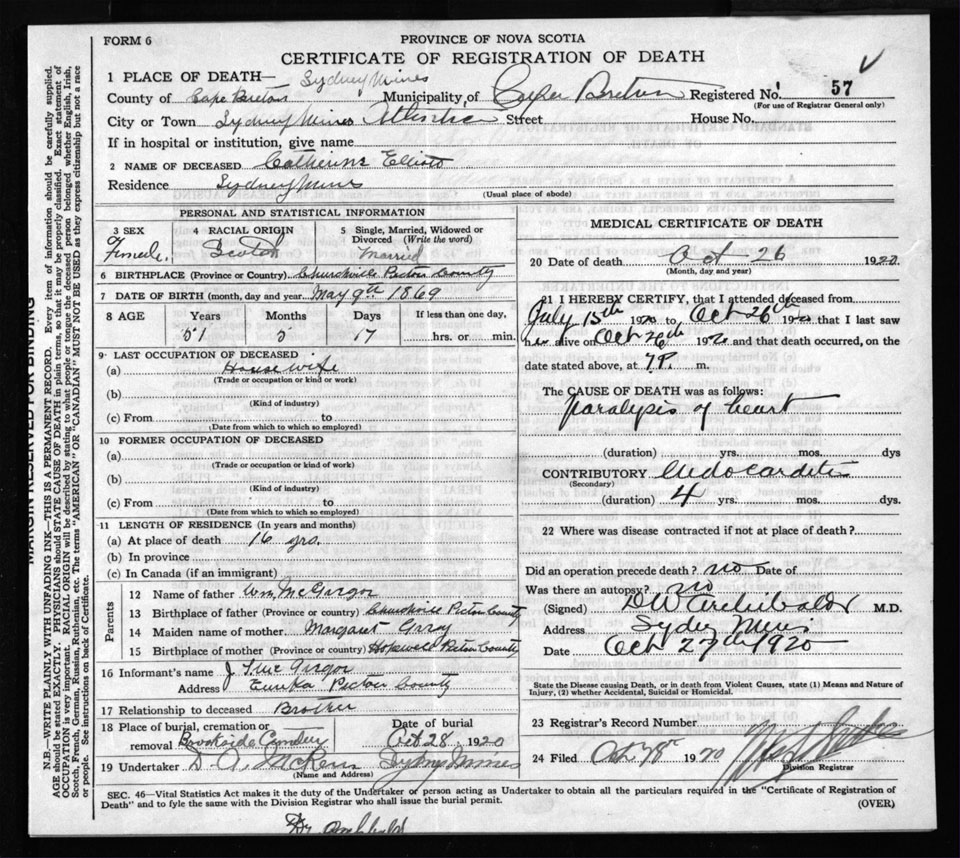 FORM 6
PROVINCE OF NOVA SCOTIA
CERTIFICATE OF REGISTRATION OF DEATH
1 PLACE OF DEATH— Sydney Mines
County of Cape Breton Municipality of Cape Breton Registered No. 57
(For use of Registrar General only)
City or Town Sydney Mines Street House No.
If in hospital or institution, give name
2 NAME OF DECEASED Catherine Elliott
Residence Sydney Mines
(Usual place of abode)
PERSONAL AND STATISTICAL INFORMATION
3 SEX Female
4 RACIAL ORIGIN Scotch
5 Single, Married, Widowed or Divorced (Write the word) Married
6 BIRTHPLACE (Province or Country) Churchville Pictou County
7 DATE OF BIRTH (month, day and year) May 9th 1869
8 AGE Years Months Days If less than one day,
51 5 17 hrs. or min.
9 LAST OCCUPATION OF DECEASED
(a) House wife
(Trade or occupation or kind or work)
(b)
(Kind of industry)
(c) From to
(Date from which to which so employed)
10 FORMER OCCUPATION OF DECEASED
(a)
(Trade or occupation or kind of work)
(b)
(Kind of industry)
(c) From to
(Date from which to which so employed)
11 LENGTH OF RESIDENCE (In years and months)
(a) At place of death 16 yrs.
(b) In province
(c) In Canada (if an immigrant)
Parents
12 Name of father Wm McGregor
13 Birthplace of father (Province or country) Churchville Pictou County
14 Maiden name of mother Margaret Gray
15 Birthplace of mother (Province or country) Hopewell Pictou County
16 Informant's name J McGregor
Address Eureka Pictou County
17 Relationship to deceased Brother
18 Place of burial, cremation or removal Brookside Cemetery
Date of burial Oct 28 1920
19 Undertaker D. A. Sydney Mines
(Name and Address)
MEDICAL CERTIFICATE OF DEATH
20 Date of death Oct 26 1920
(Month, day and year)
21 I HEREBY CERTIFY, that I attended deceased from
July 15th 1920 to Oct 26th 1920 that I last saw
her alive on Oct 26th 1920 and that death occurred, on the
date stated above, at 7 P. m.
The CAUSE OF DEATH was as follows:
paralysis of heart
(duration) yrs. mos. dys
CONTRIBUTORY Endocarditis
(Secondary)
(duration) 4 yrs. mos. dys.
22 Where was disease contracted if not at place of death?
Did an operation precede death? no Date of
Was there an autopsy? no
(Signed) D W Archibald M.D.
Address Sydney Mines
Date Oct 27th 1920
State the Disease causing Death, or in death from Violent Causes, state (1) Means and Nature of
Injury, (2) whether Accidental, Suicidal or Homicidal.
23 Registrar's Record Number
24 Filed Oct 1920
Division Registrar
SEC. 46—Vital Statistics Act makes it the duty of the Undertaker or person acting as Undertaker to obtain all the particulars required in the "Certificate of Registration of
Death" and to fyle the same with the Division Registrar who shall issue the burial permit.
(OVER)
Dr Archibald
MARGIN RESERVED FOR BINDING
N.B.—WRITE PLAINLY WITH UNFADING INK—THIS IS A PERMANENT RECORD. Every item of information should be carefully supplied.
AGE should be stated EXACTLY. PHYSICIANS should STATE CAUSE OF DEATH in plain terms, so that it may be properly classified. Exact statement of
OCCUPATION is very important. RACIAL ORIGIN will be described by stating to what people or tongue the deceased person belonged whether English, Irish,
Scotch, French, German, Russian, Ruthenian, etc. The terms "AMERICAN" OR "CANADIAN" MUST NOT BE USED as they express citizenship but not a race
or people. See instructions on back of Certificate.